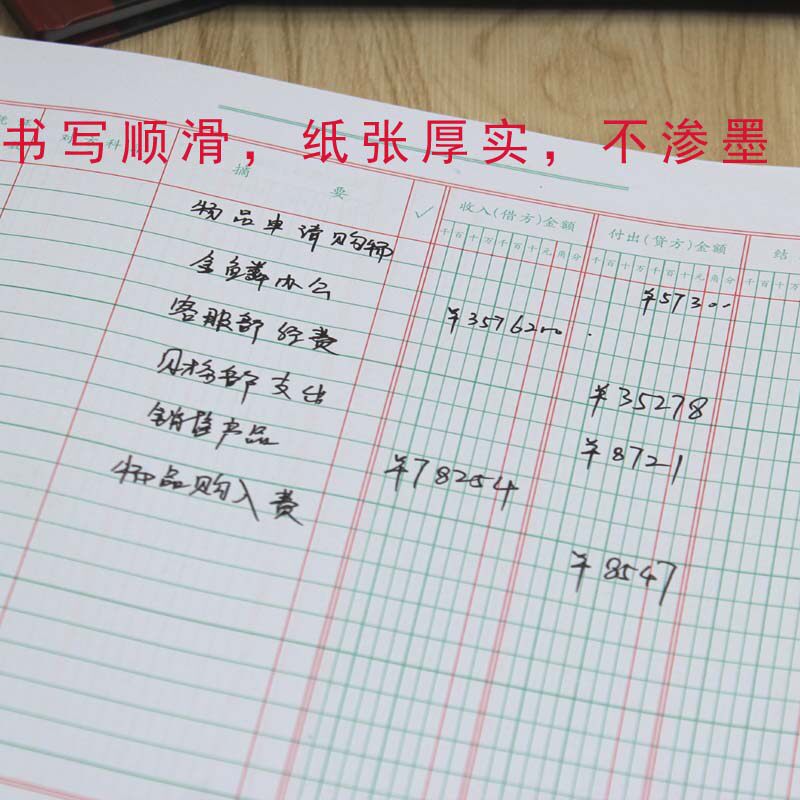 书写顺滑，纸张厚实，不渗墨
凭 证
对方科
摘 要
✓
收入(借方)金额
付出(贷方)金额
结
千百十万千百十元角分
千百十万千百十元角分
千百十万
物品申请购物 ¥57300
办公
客服部经费 ¥3576200
财务部支出 ¥35278
销售产品 ¥8721
¥78254
物品购入费
¥8547